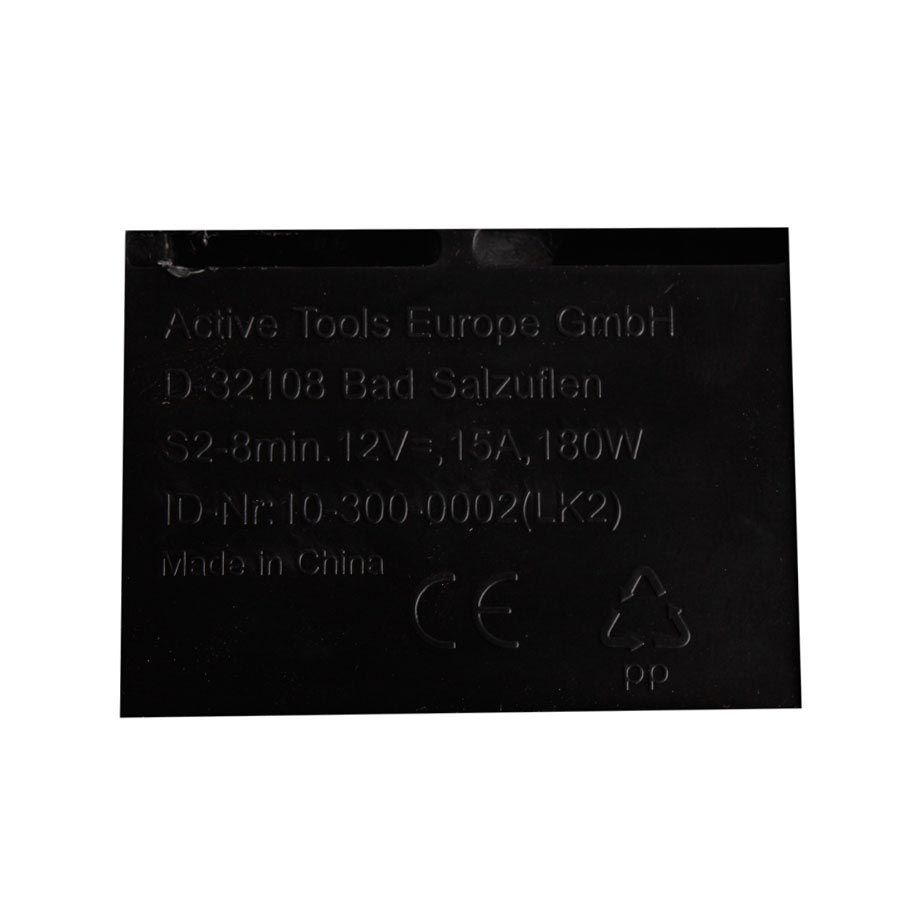 Active Tools Europe GmbH
D-32108 Bad Salzuflen
S2-8min. 12V⎓,15A,180W
ID-Nr:10-300-0002(LK2)
Made in China
CE
pp